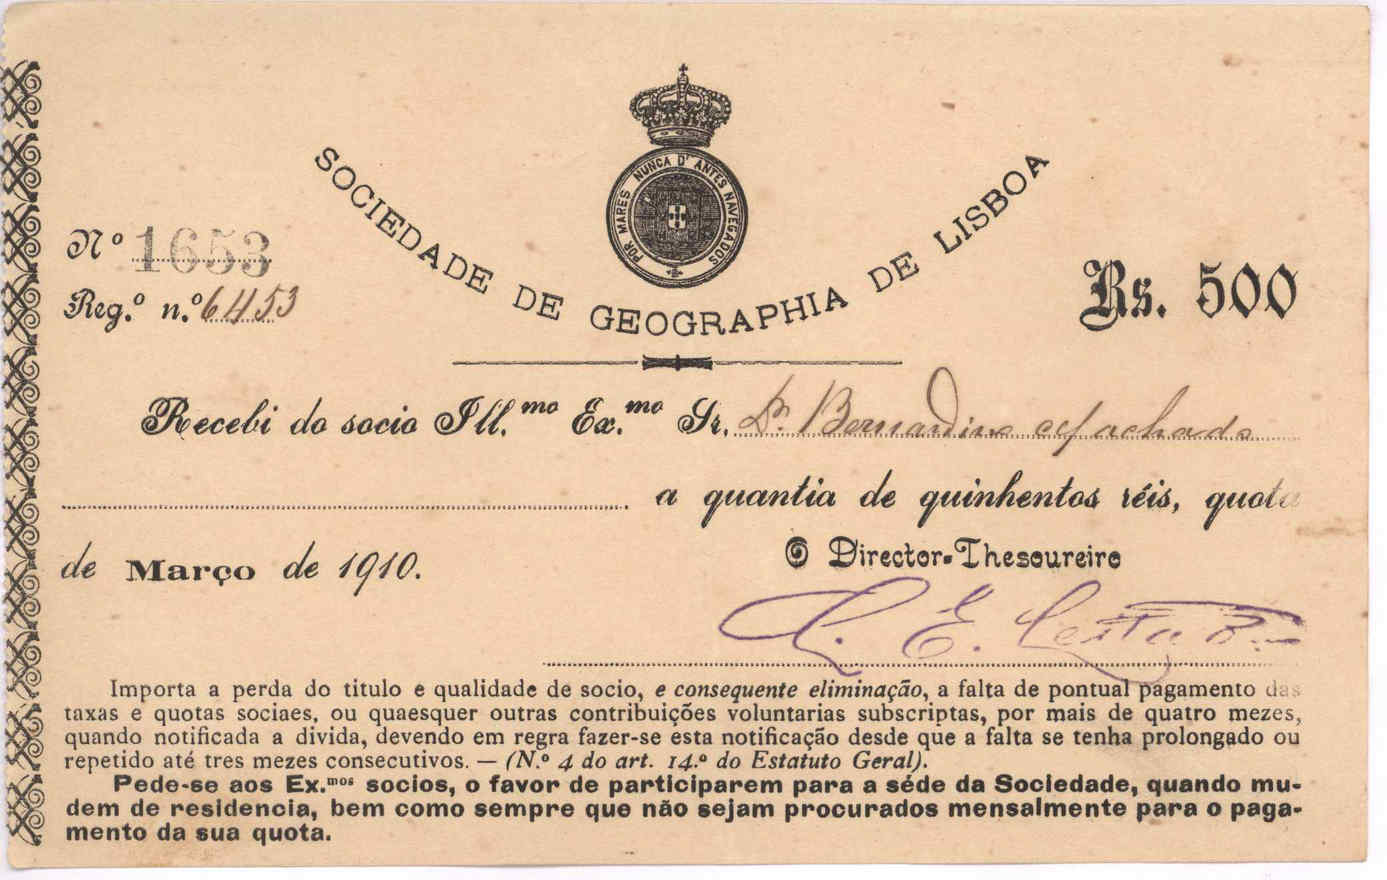 POR MARES NUNCA D'ANTES NAVEGADOS
SOCIEDADE DE GEOGRAPHIA DE LISBOA
Nº 1653
Reg.º n.º 6453
Rs. 500
Recebi do socio Ill.mo Ex.mo Sr. Dr. Bernardino Machado
a quantia de quinhentos réis, quota
de Março de 1910.
O Director-Thesoureiro
Importa a perda do titulo e qualidade de socio, e consequente eliminação, a falta de pontual pagamento das
taxas e quotas sociaes, ou quaesquer outras contribuições voluntarias subscriptas, por mais de quatro mezes,
quando notificada a divida, devendo em regra fazer-se esta notificação desde que a falta se tenha prolongado ou
repetido até tres mezes consecutivos. — (N.º 4 do art. 14.º do Estatuto Geral).
Pede-se aos Ex.mos socios, o favor de participarem para a séde da Sociedade, quando mu-
dem de residencia, bem como sempre que não sejam procurados mensalmente para o paga-
mento da sua quota.